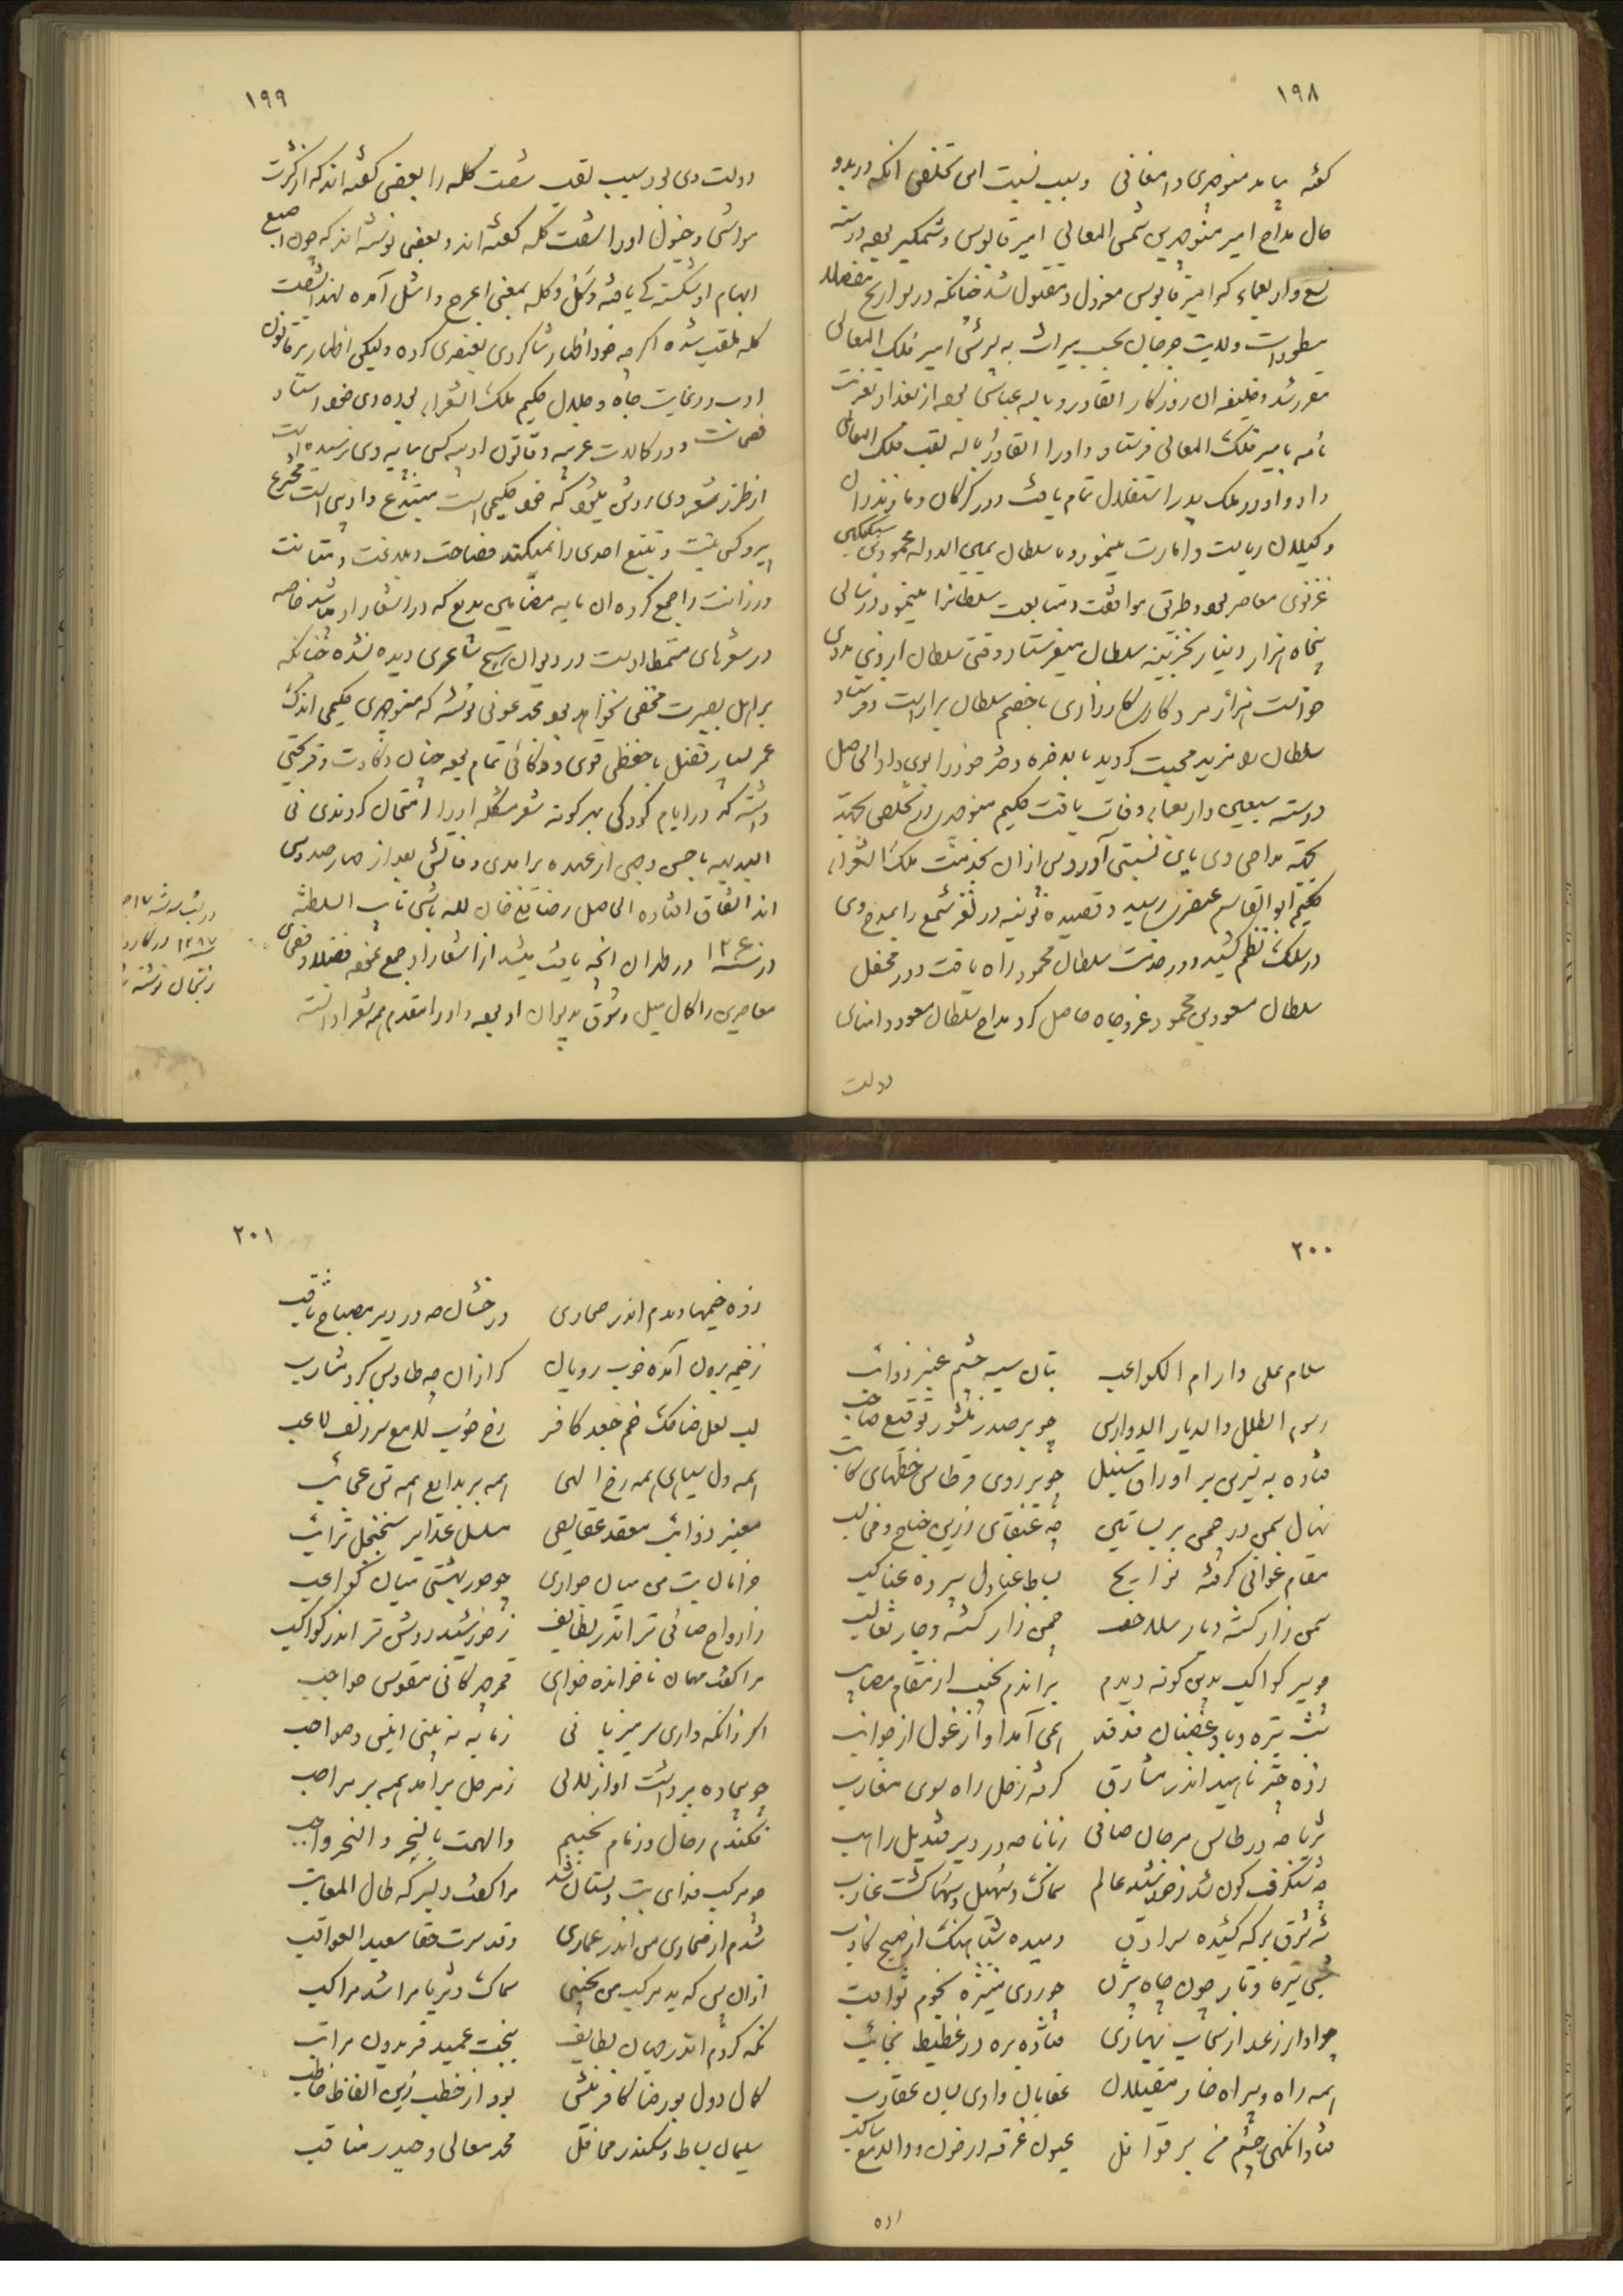 ۱۹۸
گفته بباید منوچهری دامغانی و سبب نسبت این تخلص آنکه در بدو
حال مداح امیر منوچهر بن شمس المعالی امیر قابوس وشمگیر بوده در سنه
و اربعمایه که امیر قابوس معزول و مقتول شد چنانکه در تواریخ مفصلا
مسطور است ولایت جرجان بحسب میراث به پسرش امیر فلک المعالی
مقرر شد و خلیفه آن روزگار القادر بالله عباسی بوده از بغداد تعزیت
نامه بامیر فلک المعالی فرستاد و او را القادر بالله لقب فلک المعالی
داد و او در ملک پدر استقلال تمام یافت و در گرگان و مازندران
و گیلان ریاست و امارت مینمود و با سلطان یمین الدوله محمود بن سبکتکین
غزنوی معاصر بود و طریق موافقت و متابعت سلطانرا میپیمود و در سالی
پنجاه هزار دینار بخزینه سلطان میفرستاد وقتی سلطان از وی مددی
خواست هزار مرد کاری کارزاری با خصم سلطان براراست و فرستاد
سلطان را مزید محبت گردید بالاخره دختر خود را بوی داد الحاصل
در سنه سبعین و اربعمایه وفات یافت حکیم منوچهری تخلص بجهة
بجهة مداحی وی باین نسبتی آورد پس از آن بخدمت ملک الشعراء
حکیم ابوالقاسم عنصری رسید و قصیده نونیه در لغز شمع را بمدح وی
در سلک نظم کشید و در خدمت سلطان محمود راه یافت و در محفل
سلطان مسعود بن محمود عز و جاه حاصل کرد مداح سلطان مسعود و امنای
دولت
۱۹۹
دولت وی بود سبب لقب شصت کله را بعضی گفته اند که از کثرت
مواشی و خیول او را شصت کله گفته اند و بعضی نوشته اند که چون اصبع
ابهام او شکستگی یافته و کل و کله بمعنی اعرج و اشل آمده لهذا شصت
کله ملقب شده اگرچه خود اظهار شاگردی بعنصری کرده ولیکن اظهار بر قانون
ادب و رعایت جاه و جلال حکیم ملک الشعراء بوده وی خود استاد
فصحاست و در کمالات عربیه و قانون ادبیه کسی بپایه وی نرسیده است
از طرز شعر وی روشن میشود که خود حکیمی است مبتدع و ادیبی است مخترع
پیرو کس نیست و تتبع احدی را نمیکند فصاحت و بلاغت و متانت
و رزانت را جمع کرده آن پایه مضامین بدیع که در اشعار او باشد خاصه
در شعرهای مسمط اوست در دیوان هیچ شاعری دیده نشده چنانکه
بر اهل بصیرت مخفی نخواهد بود محمد عوفی نوشته که منوچهری حکیمی اندک
عمر بسیار فضل با حفظی قوی و ذکائی تمام بوده چنان ذکاوت و قریحتی
داشته که در ایام کودکی بهر گونه شعر مشکله او را امتحان کردندی فی
البدیهه باحسن وجهی از عهده برآمدی وفاتش بعد از چهارصد و سی
اند اتفاق افتاده الحاصل رضاقلی خان لله باشی نایب السلطنه
در سنه ۱۲۶۰ در طهران آنچه یافت میشد از اشعار او جمع نموده فضلا و فصحای
معاصرین را کمال میل و شوق بدیوان او بوده و او را مقدم همه شعرا دانسته
۲۰۰
سلام علی دار ام الکواعب بتان سیه چشم عنبر ذوائب
رسوم الطلل والدیار الدوارس چو بر صدر منشور توقیع صاحب
فتاده به تیرین بر اوراق سنبل چو بر روی قرطاس خطهای کاتب
نهال سمن در چمن بر بساتین چه عنقای زرین جناح و مخالب
مقام غوانی گرفته نوائح بساط عنادل سپرده عناکب
سمن زار گشته دیار سلاحف چمن زار گشته وجار ثعالب
چو سیر کواکب بدین گونه دیدم براندم نجیب از مقام مصائب
شبی تیره و باد غضبان فدفد همی آمد آواز غول از جوانب
زده چتر ناهید اندر مشارق گرفته زحل راه سوی مغارب
ثریا چه در طاس مرجان صافی زنانا چه در دیر قندیل راهب
چه شنگرف گون شد ز خورشید عالم سماک و سهیل و سها گشت غارب
شه شرق بر که کشیده سرادق دمیده شباهنگ از صبح کاذب
شبی تیره و تار چون چاه بیژن چو روی منیژه نجوم ثواقب
چو آواز رعد از سحاب بهاری فتاده بره در غطیط نجائب
همه راه و بیراه خار مغیلان عقابان وادی بسان عقارب
فتاد آنگهی چشم من بر قوافل عیون غرقه در خون و دالدمع ساکب
زده
۲۰۱
زده خیمها دیدم اندر صحاری درخشان چه در دیر مصباح ثاقب
ز خیمه برون آمده خوب رویان گرازان چه طاوس گرد مشارب
لب لعل ضاحک خم جعد کافر رخ خوب لامع سر زلف لاعب
همه دل سپاهی همه رخ الهی همه بر بدایع همه تن عجائب
معنبر ذوائب معقد عقایص مسلسل غدایر سجنجل ترائب
خرامان بت من میان جواری چو حور بهشتی میان کواعب
ز ارواح صافی تر اندر لطایف ز خورشید روشن تر اندر کواکب
مرا گفت مهمان ناخوانده خواهی قمر چهرگانی مقوس حواجب
اگر زانکه داری سر میزبانی زمانه نه بینی انیس و مواحب
چو سیاره برداشت آواز لالی ز مرحل برآمد همه بر مراحب
فکندم رحال و زمام نجیبم والهمت بالنجر والنحر واجب
چو مرکب فدای بت دلستان شد مرا گفت دلبر که طال المعاتب
شدم از صحاری من اندر عماری وقد سرت حقا سعید العواقب
از آن پس که بد مرکب من نجیبی سماک و ثریا مرا شد مراکب
نگه کردم اندر جهان لطایف ببخت عمید فریدون مراتب
کمال دول بورضا کافرینش بود از خطب زین الفاظ خاطب
سلیمان بساط و سکندر محافل محمد معالی و حیدر مناقب